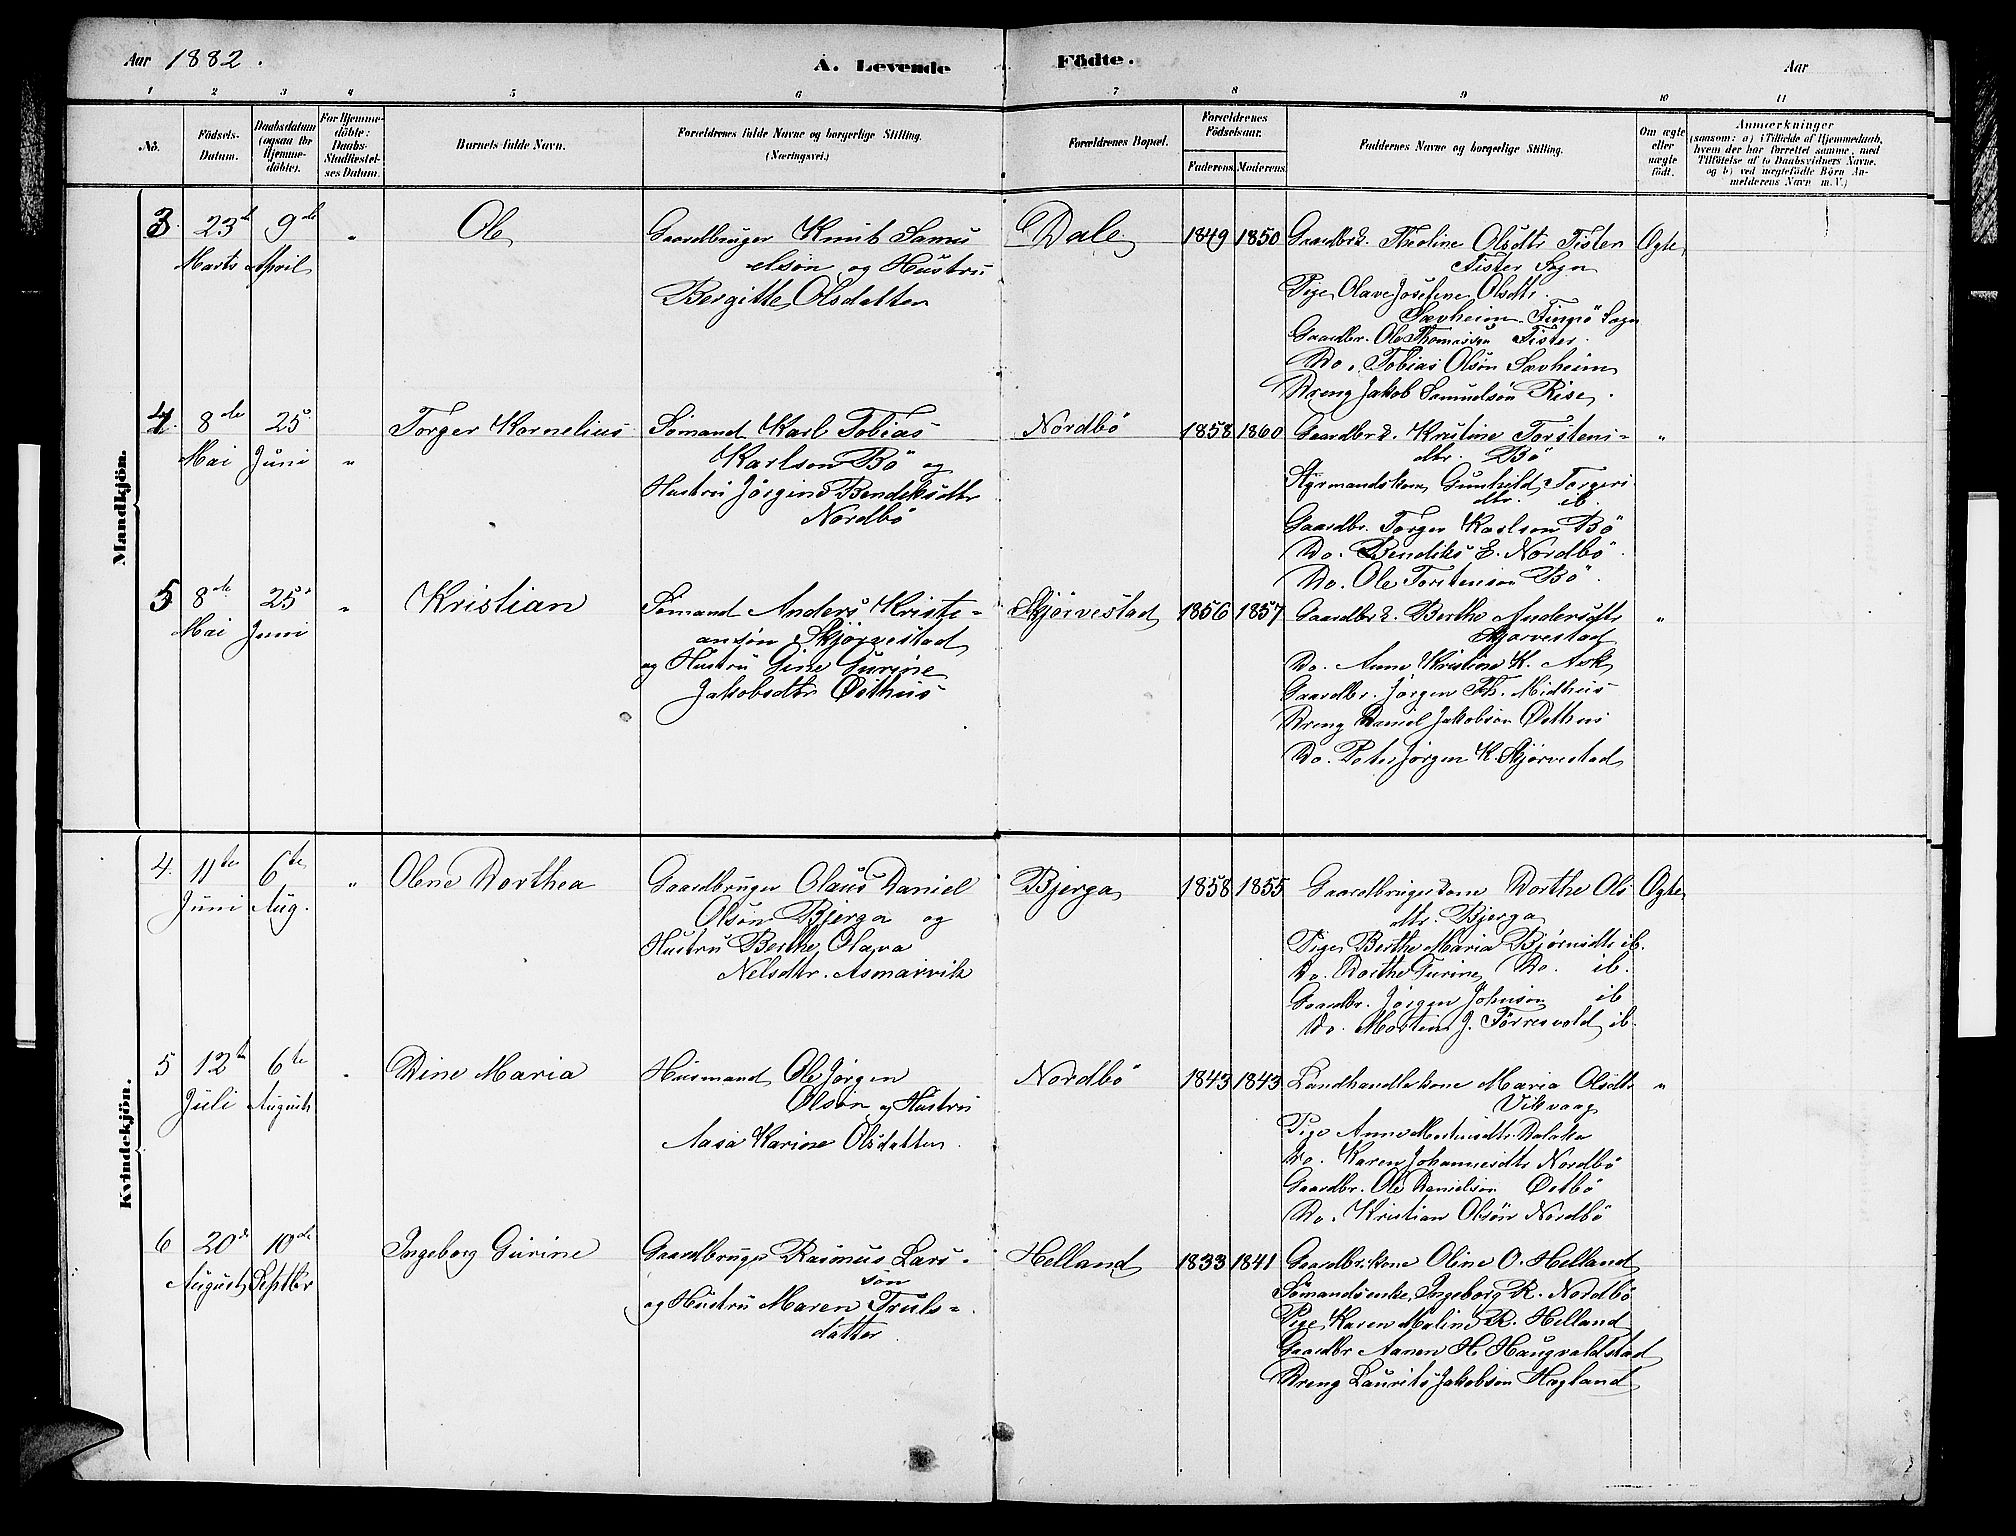 Aar 1882.
A. Levende Födte.
Aar
1 2 3 4 5 6 7 8 9 10 11
No.
Födsels-Datum.
Daabsdatum (ogsaa for Hjemmedöbte).
For Hjemmedöbte: Daabs-Stadfæstelses Datum.
Barnets fulde Navn.
Forældrenes fulde Navne og borgerlige Stilling.
(Næringsvei.)
Forældrenes Bopæl.
Forældrenes Födselsaar.
Faderens. Moderens.
Faddernes Navne og borgerlige Stilling.
Om ægte eller uægte födt.
Anmærkninger
(saasom: a) i Tilfælde af Hjemmedaab, hvem der har forrettet samme, med Tilföielse af to Daabsvidners Navne, og b) ved uægtefödte Börn Anmelderens Navn m. V.)
Mandkjön.
3. 23de Marts 9de April " Ole
Gaardbruger Knut Samu
elsøn og Hustru
Bergitte Olsdatter
Dale 1849 1850
Gaardbr.k. Tholine Olsdtr Fister
Fister Sogn
Pige Olave Josefine Olsdtr.
Sævheim Fingø Sogn
Gaardbr. Ole Thomassen Fister.
Do. Tobias Olsøn Sævheim
Dreng Jakob Samuelsøn Rise.
Ægte
4. 8de Mai 25. Juni " Torger Kornelius
Sømand Karl Tobias
Karlson Bö og
Hustru Jørgine Bendiksdtr
Nordbö
Nordbö 1858 1860
Gaardbr.k. Kristine Torstens-
dtr. Bö
Styrmandskone Gunhild Torgers
dtr. ib.
Gaardbr. Torger Karlson Bö
Do. Bendiks E. Nordbö.
Do. Ole Torstenson Bö.
"
5 8de Mai 25. Juni " Kristian
Sømand Anders Kristi-
ansøn Skjørvestad
og Hustru Gine Gurine
Jakobsdtr Østhus
Skjørvestad 1856 1857
Gaardbr.k. Berthe Andersdtr
Skjørvestad
Do. Anne Kristine K. Ask
Gaardbr. Jørgen Th. Midhus
Dreng Daniel Jakobson Østhus
Do. Peter Jørgen K. Skjørvestad
"
Kvindekjön.
4. 11te Juni 6te Aug. " Olene Dorthea
Gaardbruger Olaus Daniel
Olsøn Bjerga og
Hustru Berthe Olava
Nelsdtr. Asmarvik
Bjerga 1858 1855
Gaardbrugerkone Dorthe Ols
dtr. Bjerga
Pige Berthe Maria Bjørnsdtr ib.
Do. Dorthe Turine Do. ib.
Gaardbr. Jørgen Johnson ib
Do. Martin J. Førresvold ib.
Ægte
5 12te Juli 6te August " Dine Maria
Husmand Ole Jørgen
Olsøn og Hustru
Aasa Karine Olsdatter.
Nordbö 1843 1843
Landhandlerkone Maria Olsdtr
Vikvaag
Pige Anne Mortensdtr. Dalaker
Do. Karen Johannesdtr Nordbö
Gaardbr. Ole Danielson Østbö
Do. Kristian Olsøn Nordbö
"
6 20de August 10de Septbr Ingeborg Gurine
Gaardbruger Rasmus Lars-
son
og Hustru Maren Truls-
datter.
Helland 1833 1841
Gaardbr.kone Oline O. Helland
Sømandsenke Ingeborg R. Nordbö
Pige Karen Maline R. Helland
Gaardbr Aanen H. Haugvaldstad
Dreng Laurits Jakobson Hagland